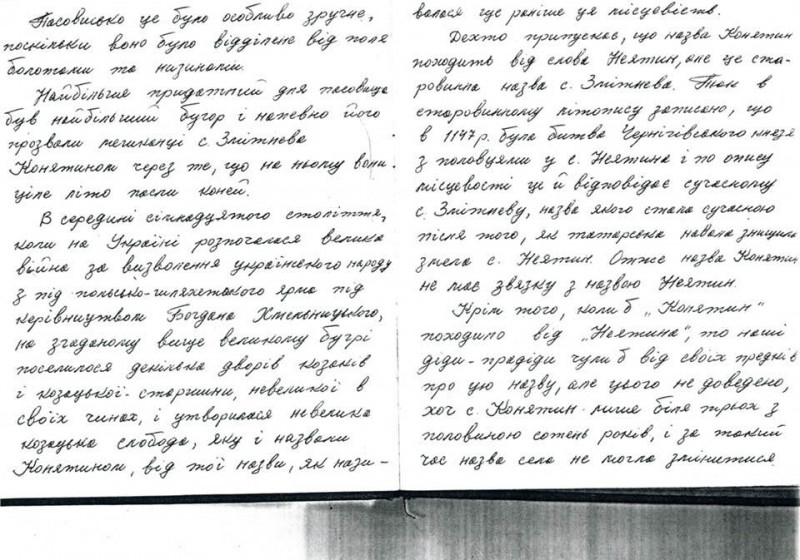 Пасовисько це було особливо зручне,
поскільки воно було відділене від поля
болотами та низинами.
Найбільше придатний для пасовища
був найбільший бугор і напевно його
прозвали мешканці с. Зміжнева
Конятином через те, що на ньому вони
ціле літо пасли коней.
В середині сімнадцятого століття,
коли на Україні розпочалася велика
війна за визволення українського народу
з під польсько-шляхетського ярма під
керівництвом Богдана Хмельницького,
на згаданому вище великому бугрі
поселилося декілька дворів козаків
і козацької старшини, невеликої в
своїх чинах, і утворилася невелика
козацька слобода, яку і назвали
Конятином, від тої назви, як нази-
валася ще раніше ця місцевість.
Дехто припускає, що назва Конятин
походить від слова Неятин, але це ста-
ровинна назва с. Зміжнева. Так в
старовинному літопису записано, що
в 1147 р. була битва Чернігівського князя
з половцями у с. Неятина і по опису
місцевості це й відповідає сучасному
с. Зміжневу, назва якого стала сучасною
після того, як татарська навала знищила
змела с. Неятин. Отже назва Конятин
не має звязку з назвою Неятин.
Крім того, коли б „Конятин"
походило від „Неятина", то наші
діди-прадіди чули б від своїх предків
про цю назву, але цього не доведено,
хоч с. Конятин лише біля трьох з
половиною сотень років, і за такий
час назва села не могла змінитися